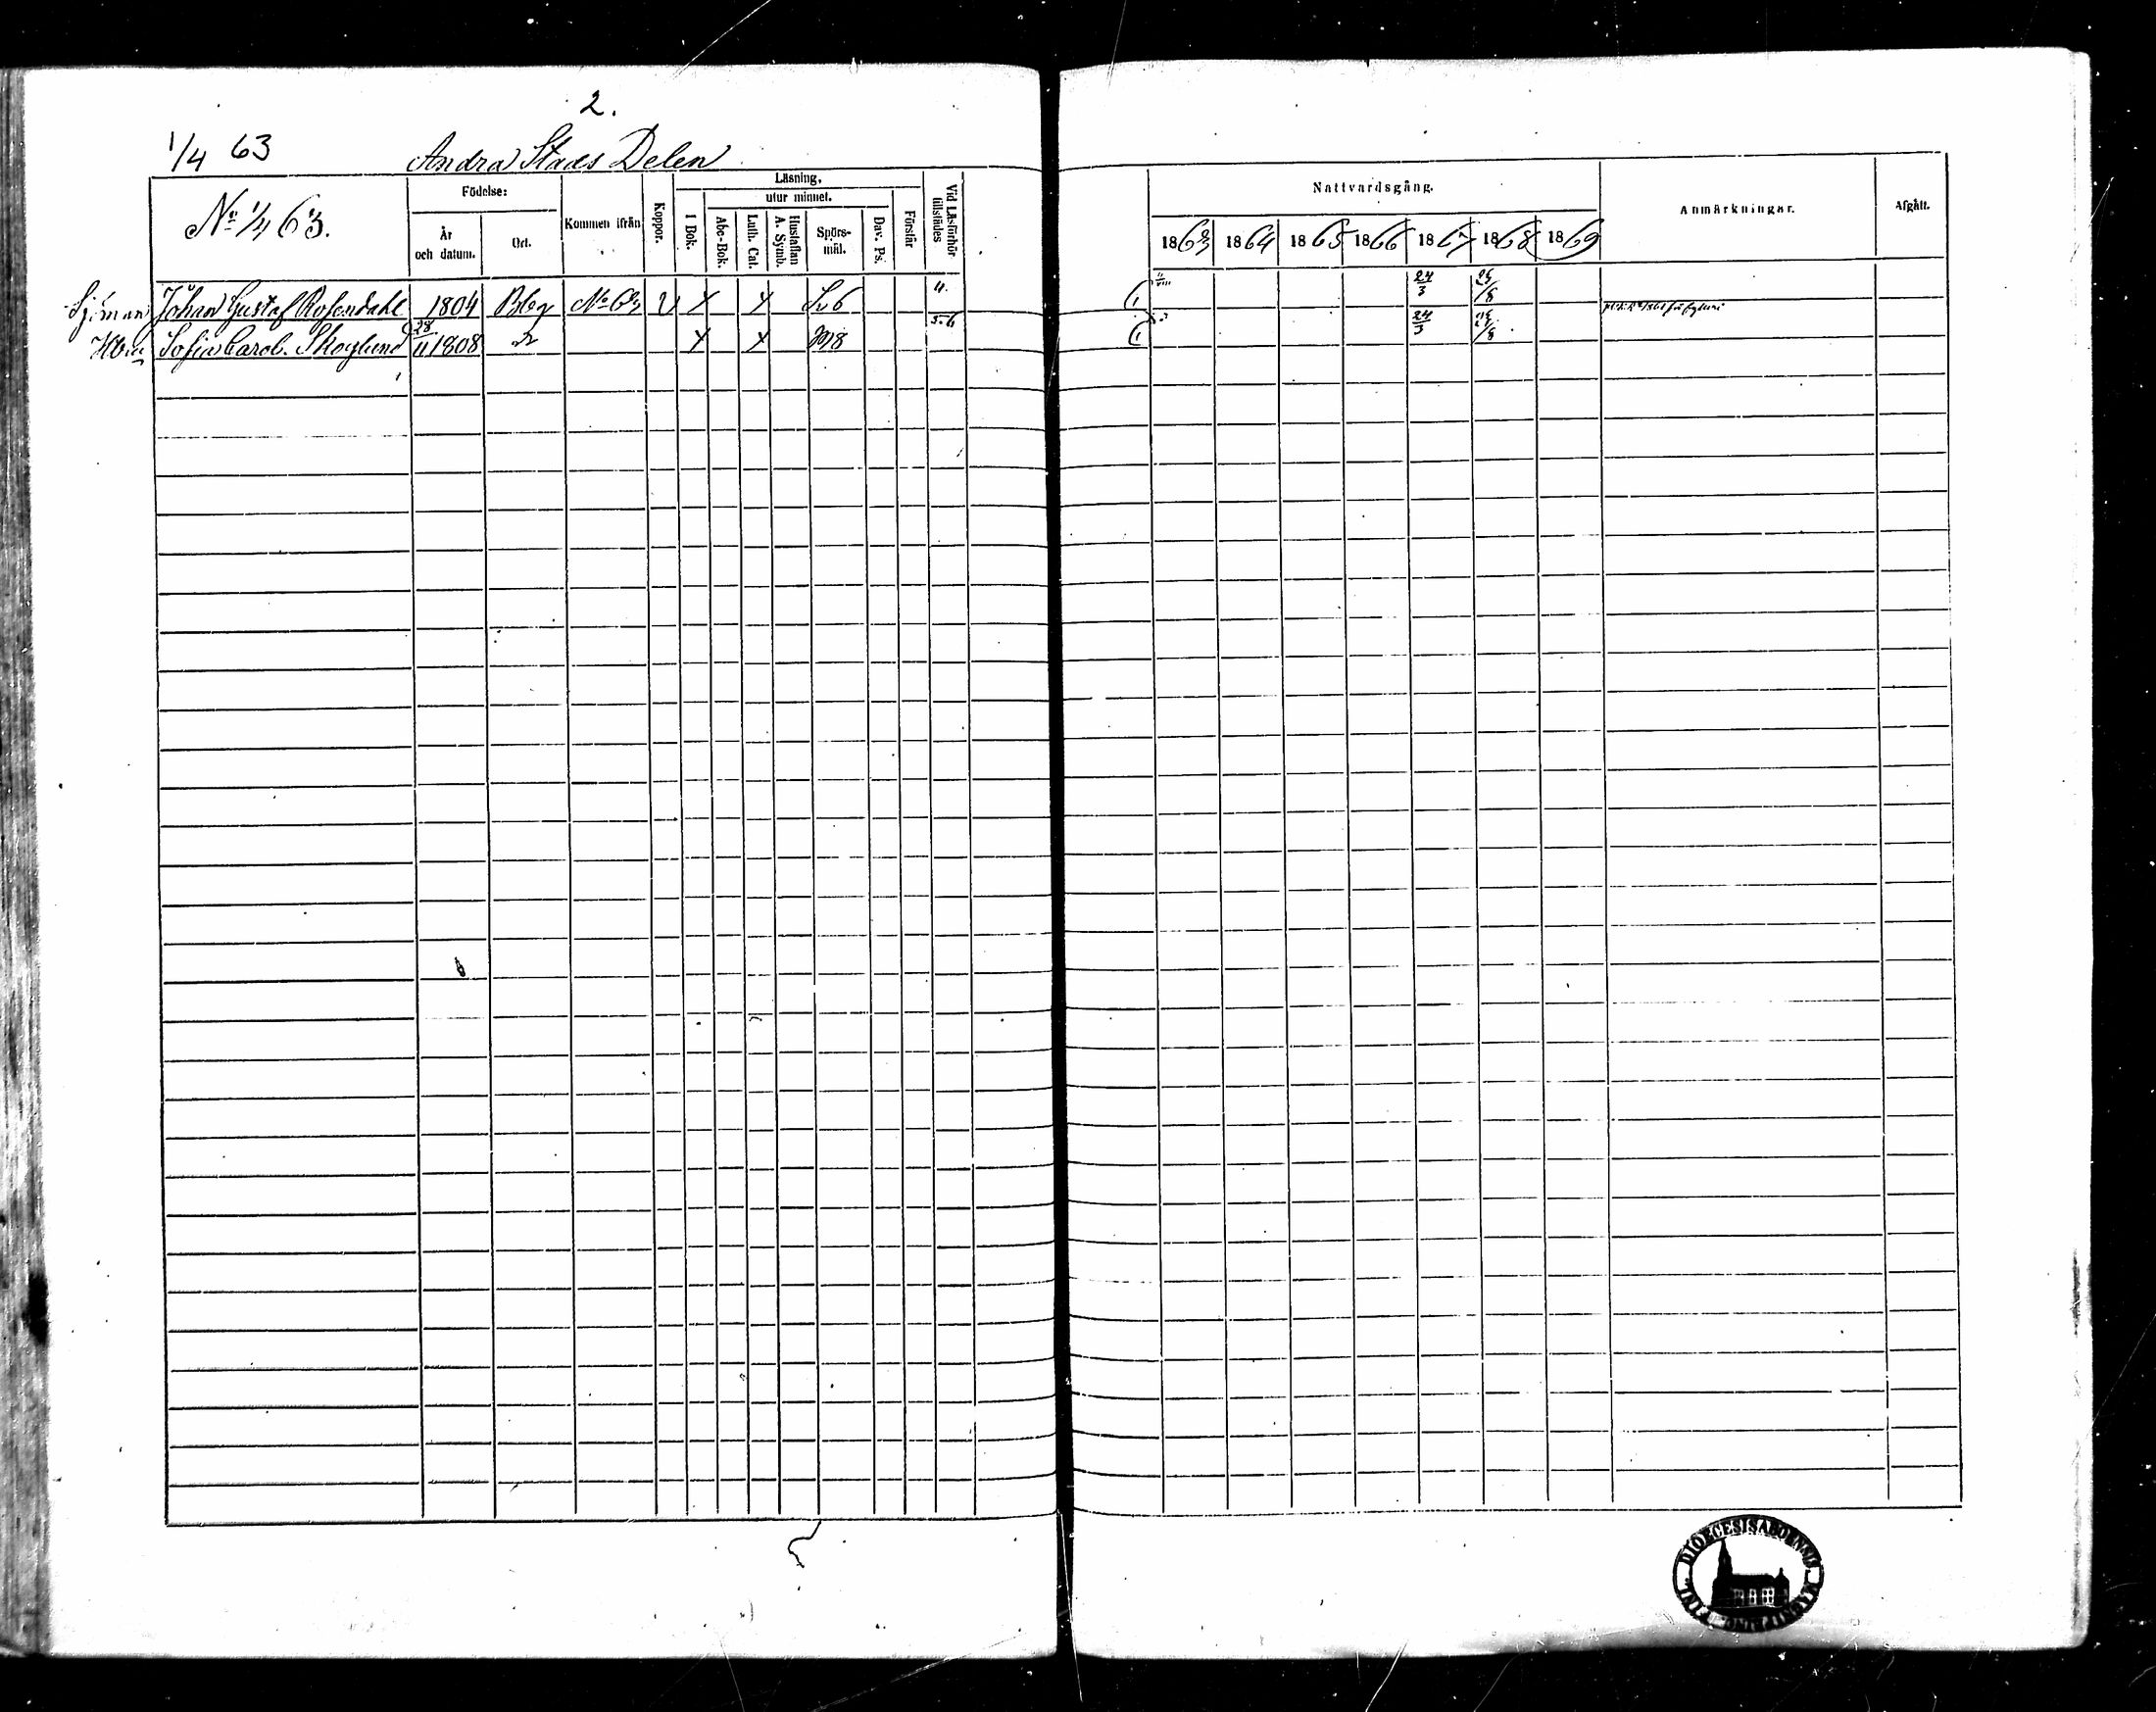 2.
1/4 63 Andra Stads Delen
No 1/4 63.
Födelse:
År och datum.
Ort.
Kommen ifrån
Koppor.
Läsning,
I Bok.
utur minnet.
Abc-Bok.
Luth. Cat.
Hustaflan A. Symb.
Spörs-mål.
Dav. Ps.
Förstår
Vid Läsförhör tillstädes
Nattvardsgång.
1863 1864 1865 1866 1867 1868 1869
Anmärkningar.
Afgått.
Sjöman Johan Gustaf Rosendahl 1804 Bbg No 63 v x x Sv6 24/3 25/8
Hbn Sofia Carol. Skoglund 28/11 1808 x x 5.6 24/3 25/8
DIOECESIS ABOENSIS